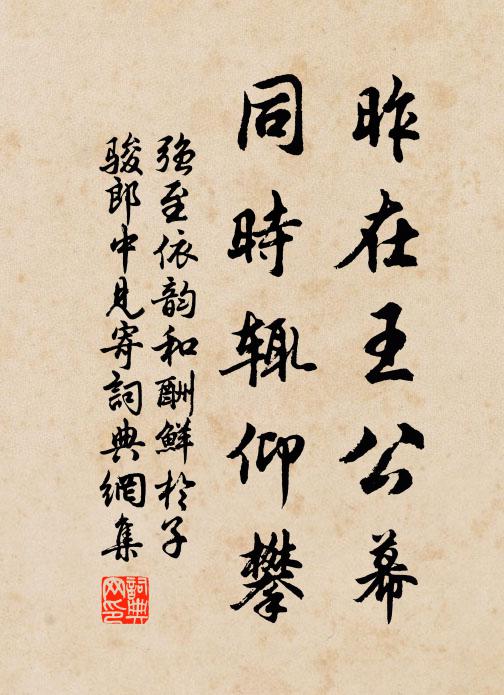 昨在王公幕
同時辄仰攀
强至依韵和酬鮮於子
骏郎中見寄詞典網集
詞典网印